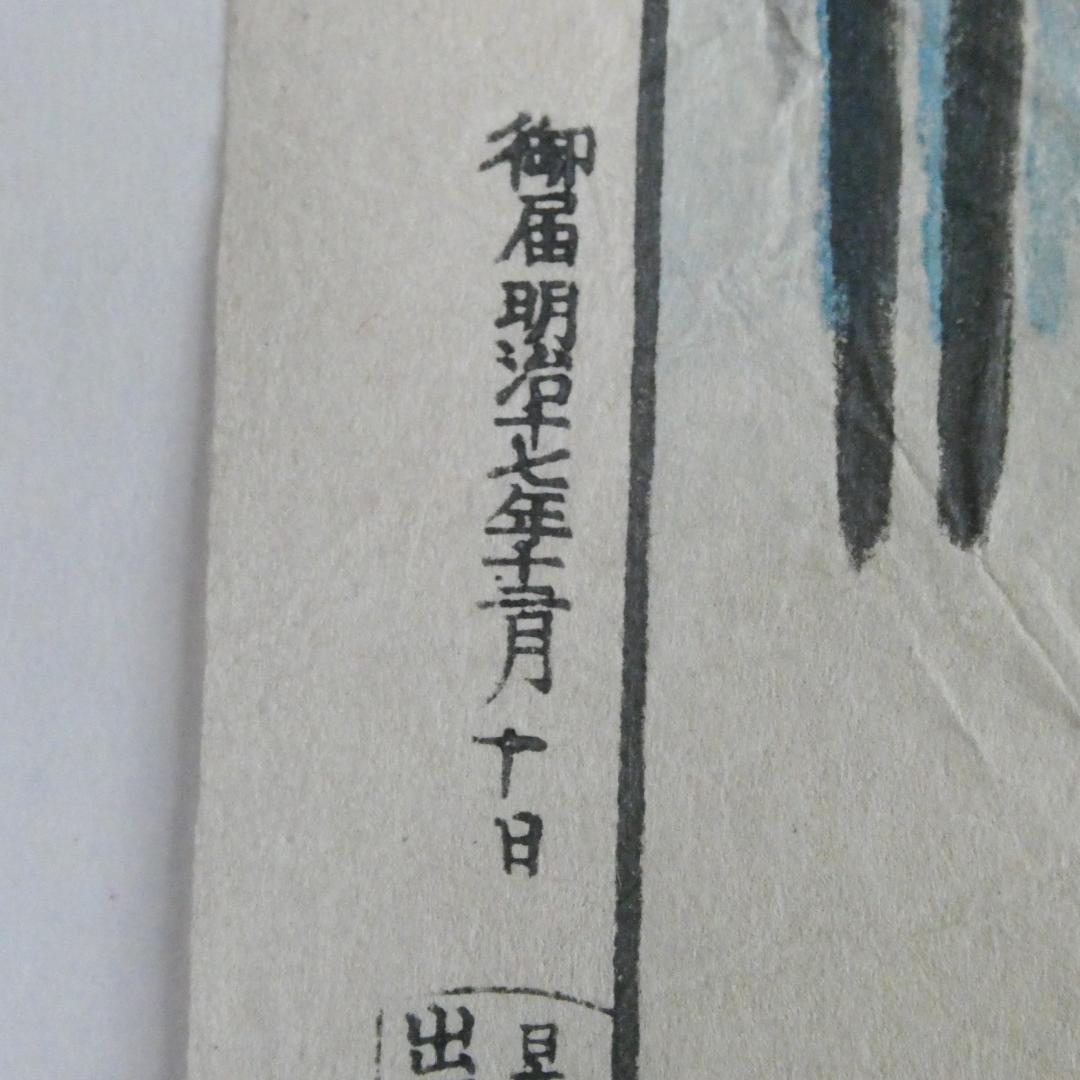 御届明治十七年十二月十日
出